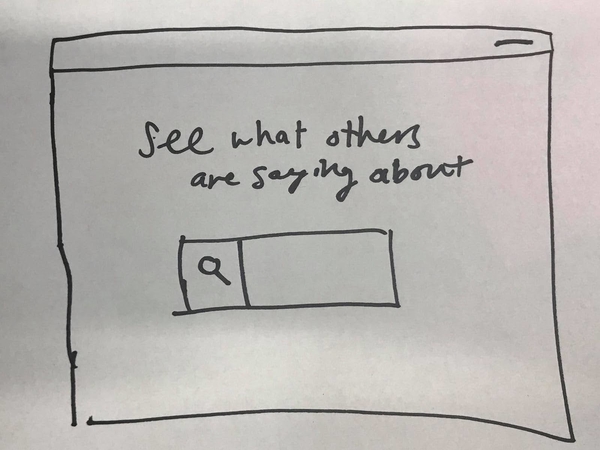 See what others
are saying about